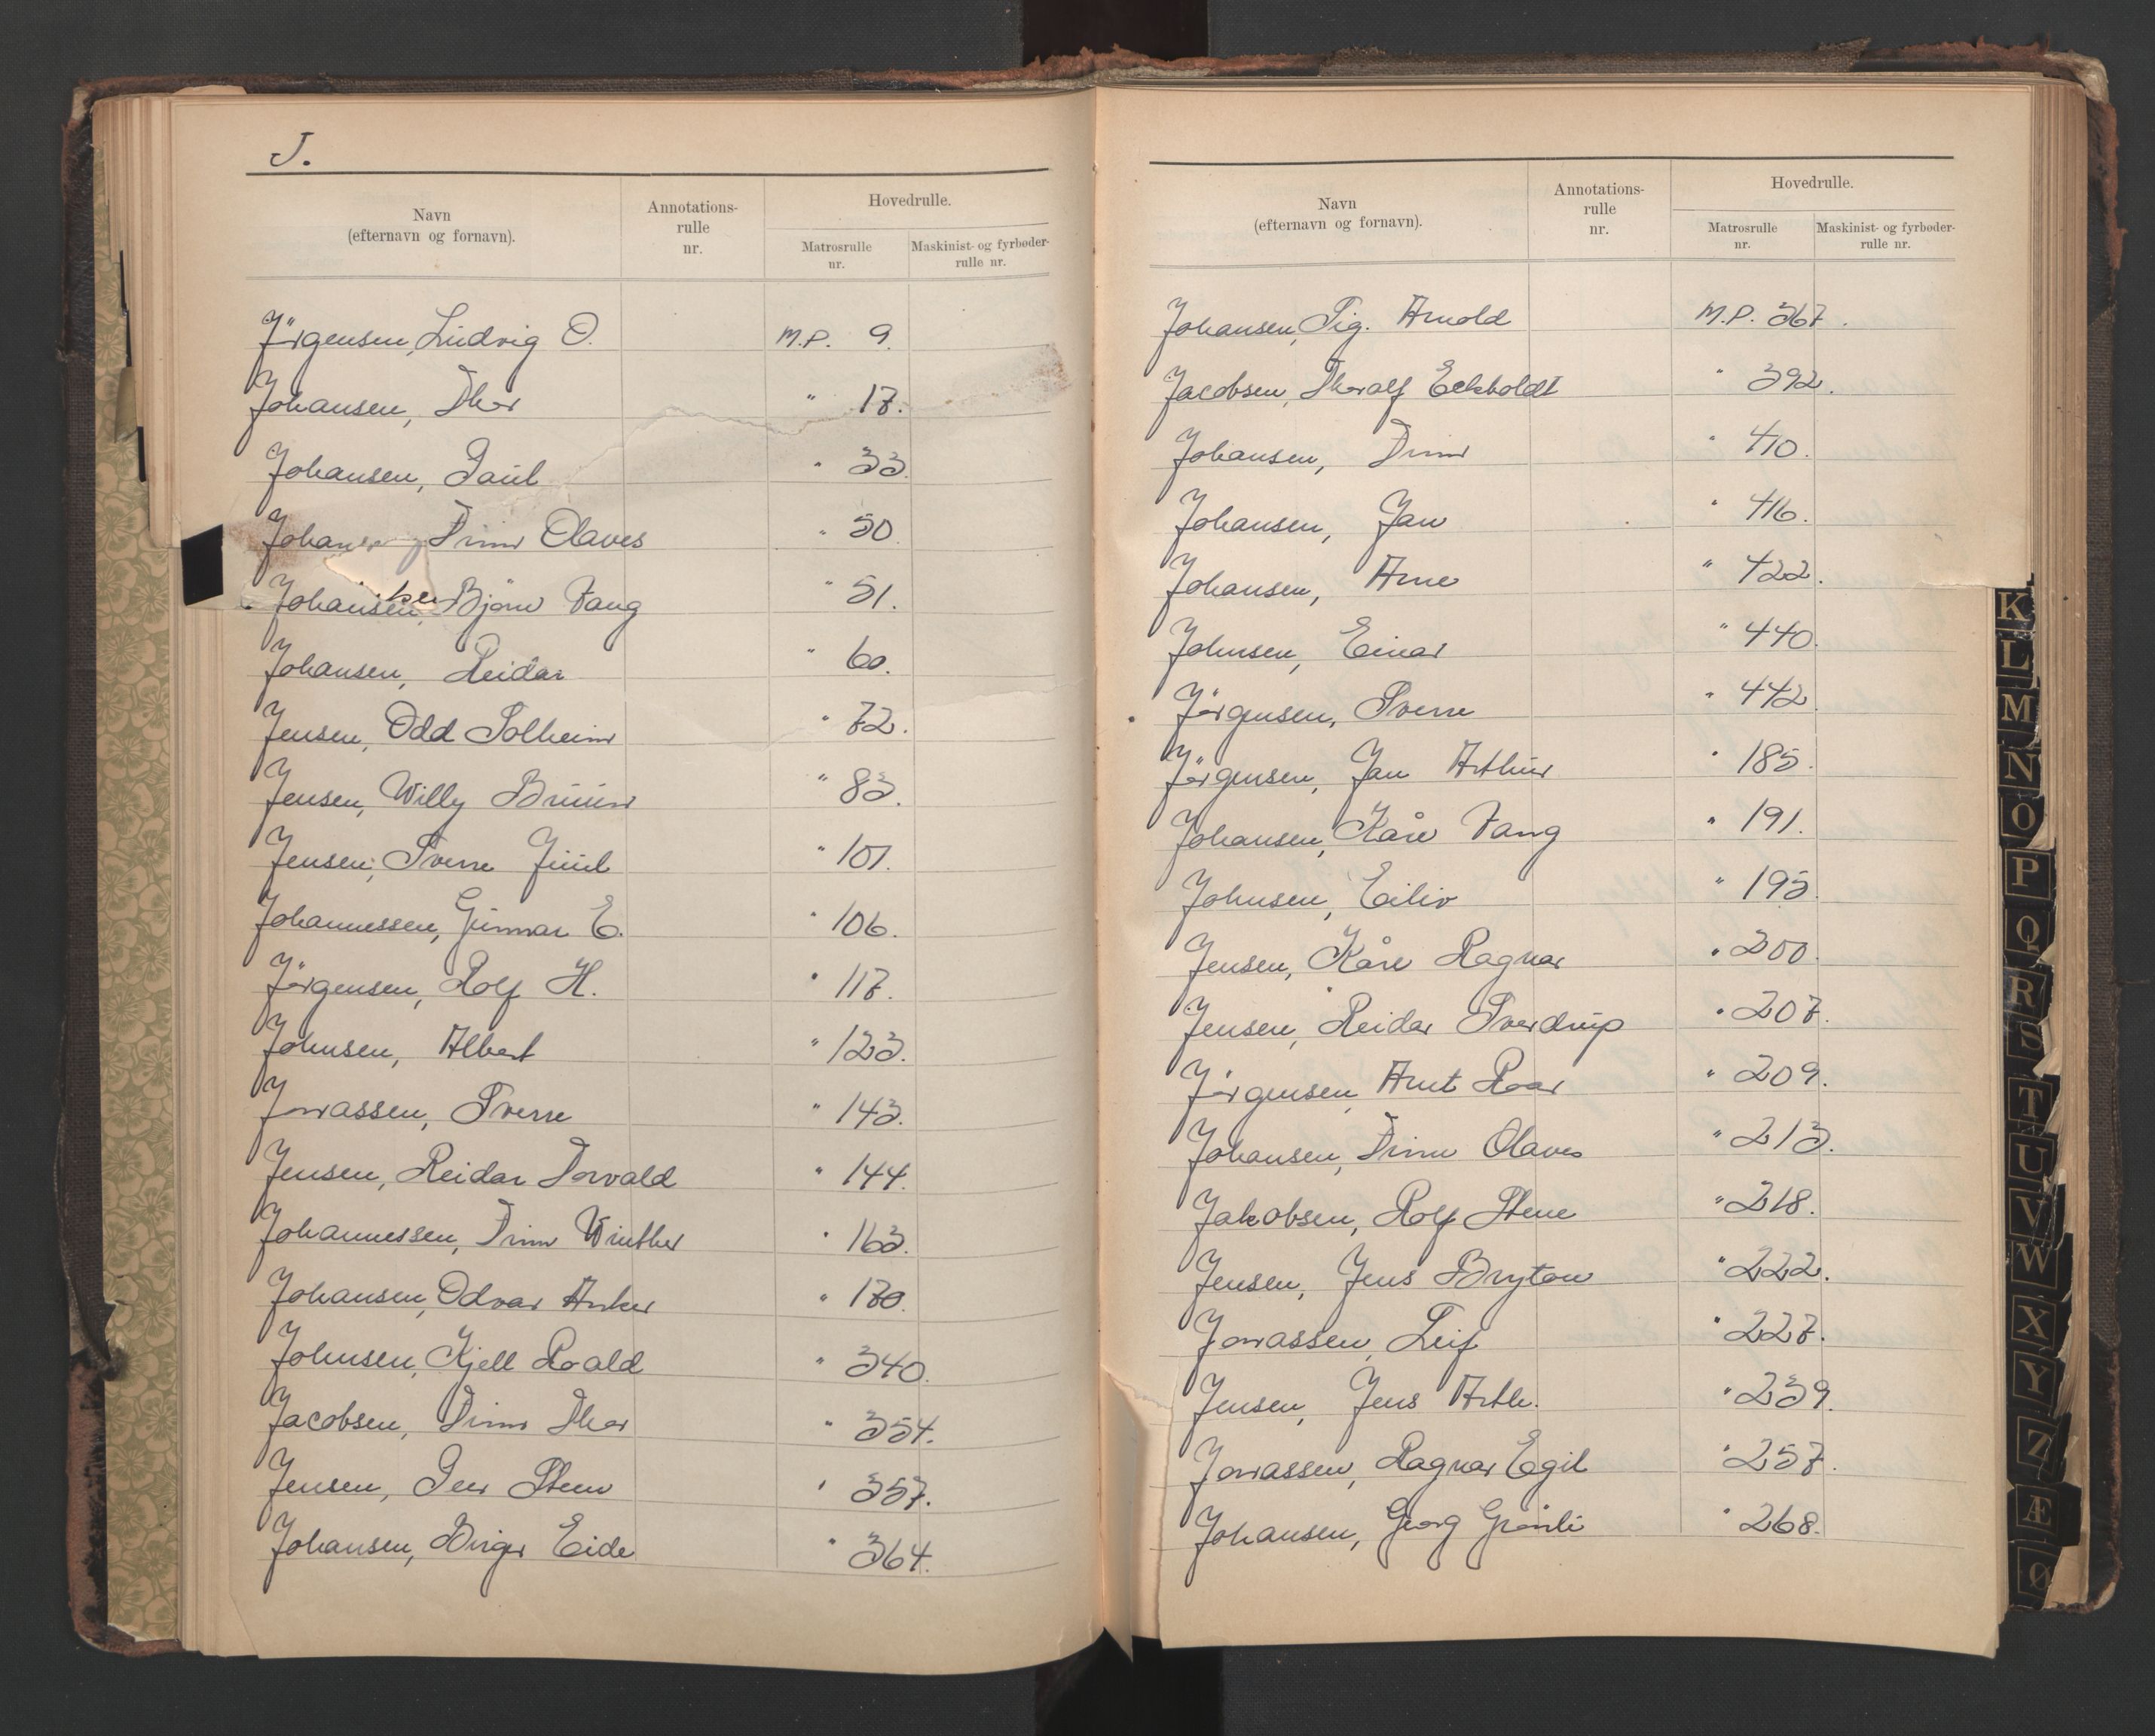 J.
Navn
(efternavn og fornavn).
Annotations-
rulle
nr.
Hovedrulle.
Matrosrulle
nr.
Maskinist- og fyrbøder-
rulle nr.
Jörgensen, Ludvig O. M.P. 9.
Johansen, Thor " 17.
Johansen, Paul " 33.
Johansen, Finn Olaves " 50.
Johansen, Bjørn Fang " 51.
Johansen, Reidar " 60.
Jensen, Odd Solheim " 72.
Jensen, Willy Bruun " 83.
Jensen, Sverre Juul " 101.
Johannessen, Gunnar E. " 106.
Jörgensen, Rolf H. " 117.
Johnsen, Albert " 123.
Jonassen, Sverre " 143.
Jensen, Reidar Torvald " 144.
Johannessen, Finn Winther " 163.
Johansen, Odvar Anker " 170.
Johnsen, Kjell Roald " 340.
Jacobsen, Finn Thor " 354.
Jensen, Per Steen " 357.
Johansen, Birger Eide " 364.
Navn
(efternavn og fornavn).
Annotations-
rulle
nr.
Hovedrulle.
Matrosrulle
nr.
Maskinist- og fyrbøder-
rulle nr.
Johansen, Sig. Arnold M.P. 367.
Jacobsen, Thoralf Eckholdt " 392.
Johansen, Finn " 410.
Johansen, Jan " 416.
Johansen, Arne " 422.
Johnsen, Einar " 440.
Jörgensen, Sverre " 442
Jörgensen, Jan Arthur " 185.
Johansen, Kåre Fang " 191.
Johnsen, Eiliv " 195.
Jensen, Kåre Ragnar " 200.
Jensen, Reidar Sverdrup " 207.
Jörgensen, Arnt Roar " 209.
Johansen, Finn Olaves " 213.
Jakobsen, Rolf Stene " 218.
Jensen, Jens Bryton " 222.
Jonassen, Leif " 227.
Jensen, Jens Arth. " 239.
Jonassen, Ragnar Egil " 257.
Johansen, Georg Grønli " 268.
K
L
M
N
O
P
Q
R
S
T
U
V
W
X
Y
Z
Æ
Ø